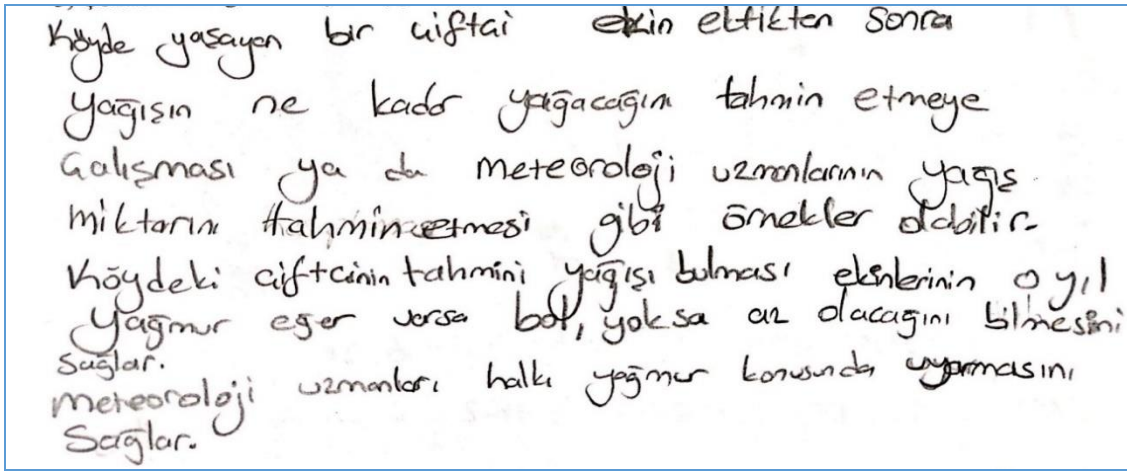 Köyde yaşayan bir çiftçi ekin ektikten sonra
yağışın ne kadar yağacağını tahmin etmeye
Çalışması ya da meteoroloji uzmanlarının yağış
miktarını tahmin etmesi gibi örnekler olabilir.
Köydeki çiftcinin tahmini yağışı bulması ekinlerinin o yıl
yağmur eğer varsa bol, yoksa az olacağını bilmesini
sağlar.
meteoroloji uzmanları halkı yağmur konusunda uyarmasını
Sağlar.